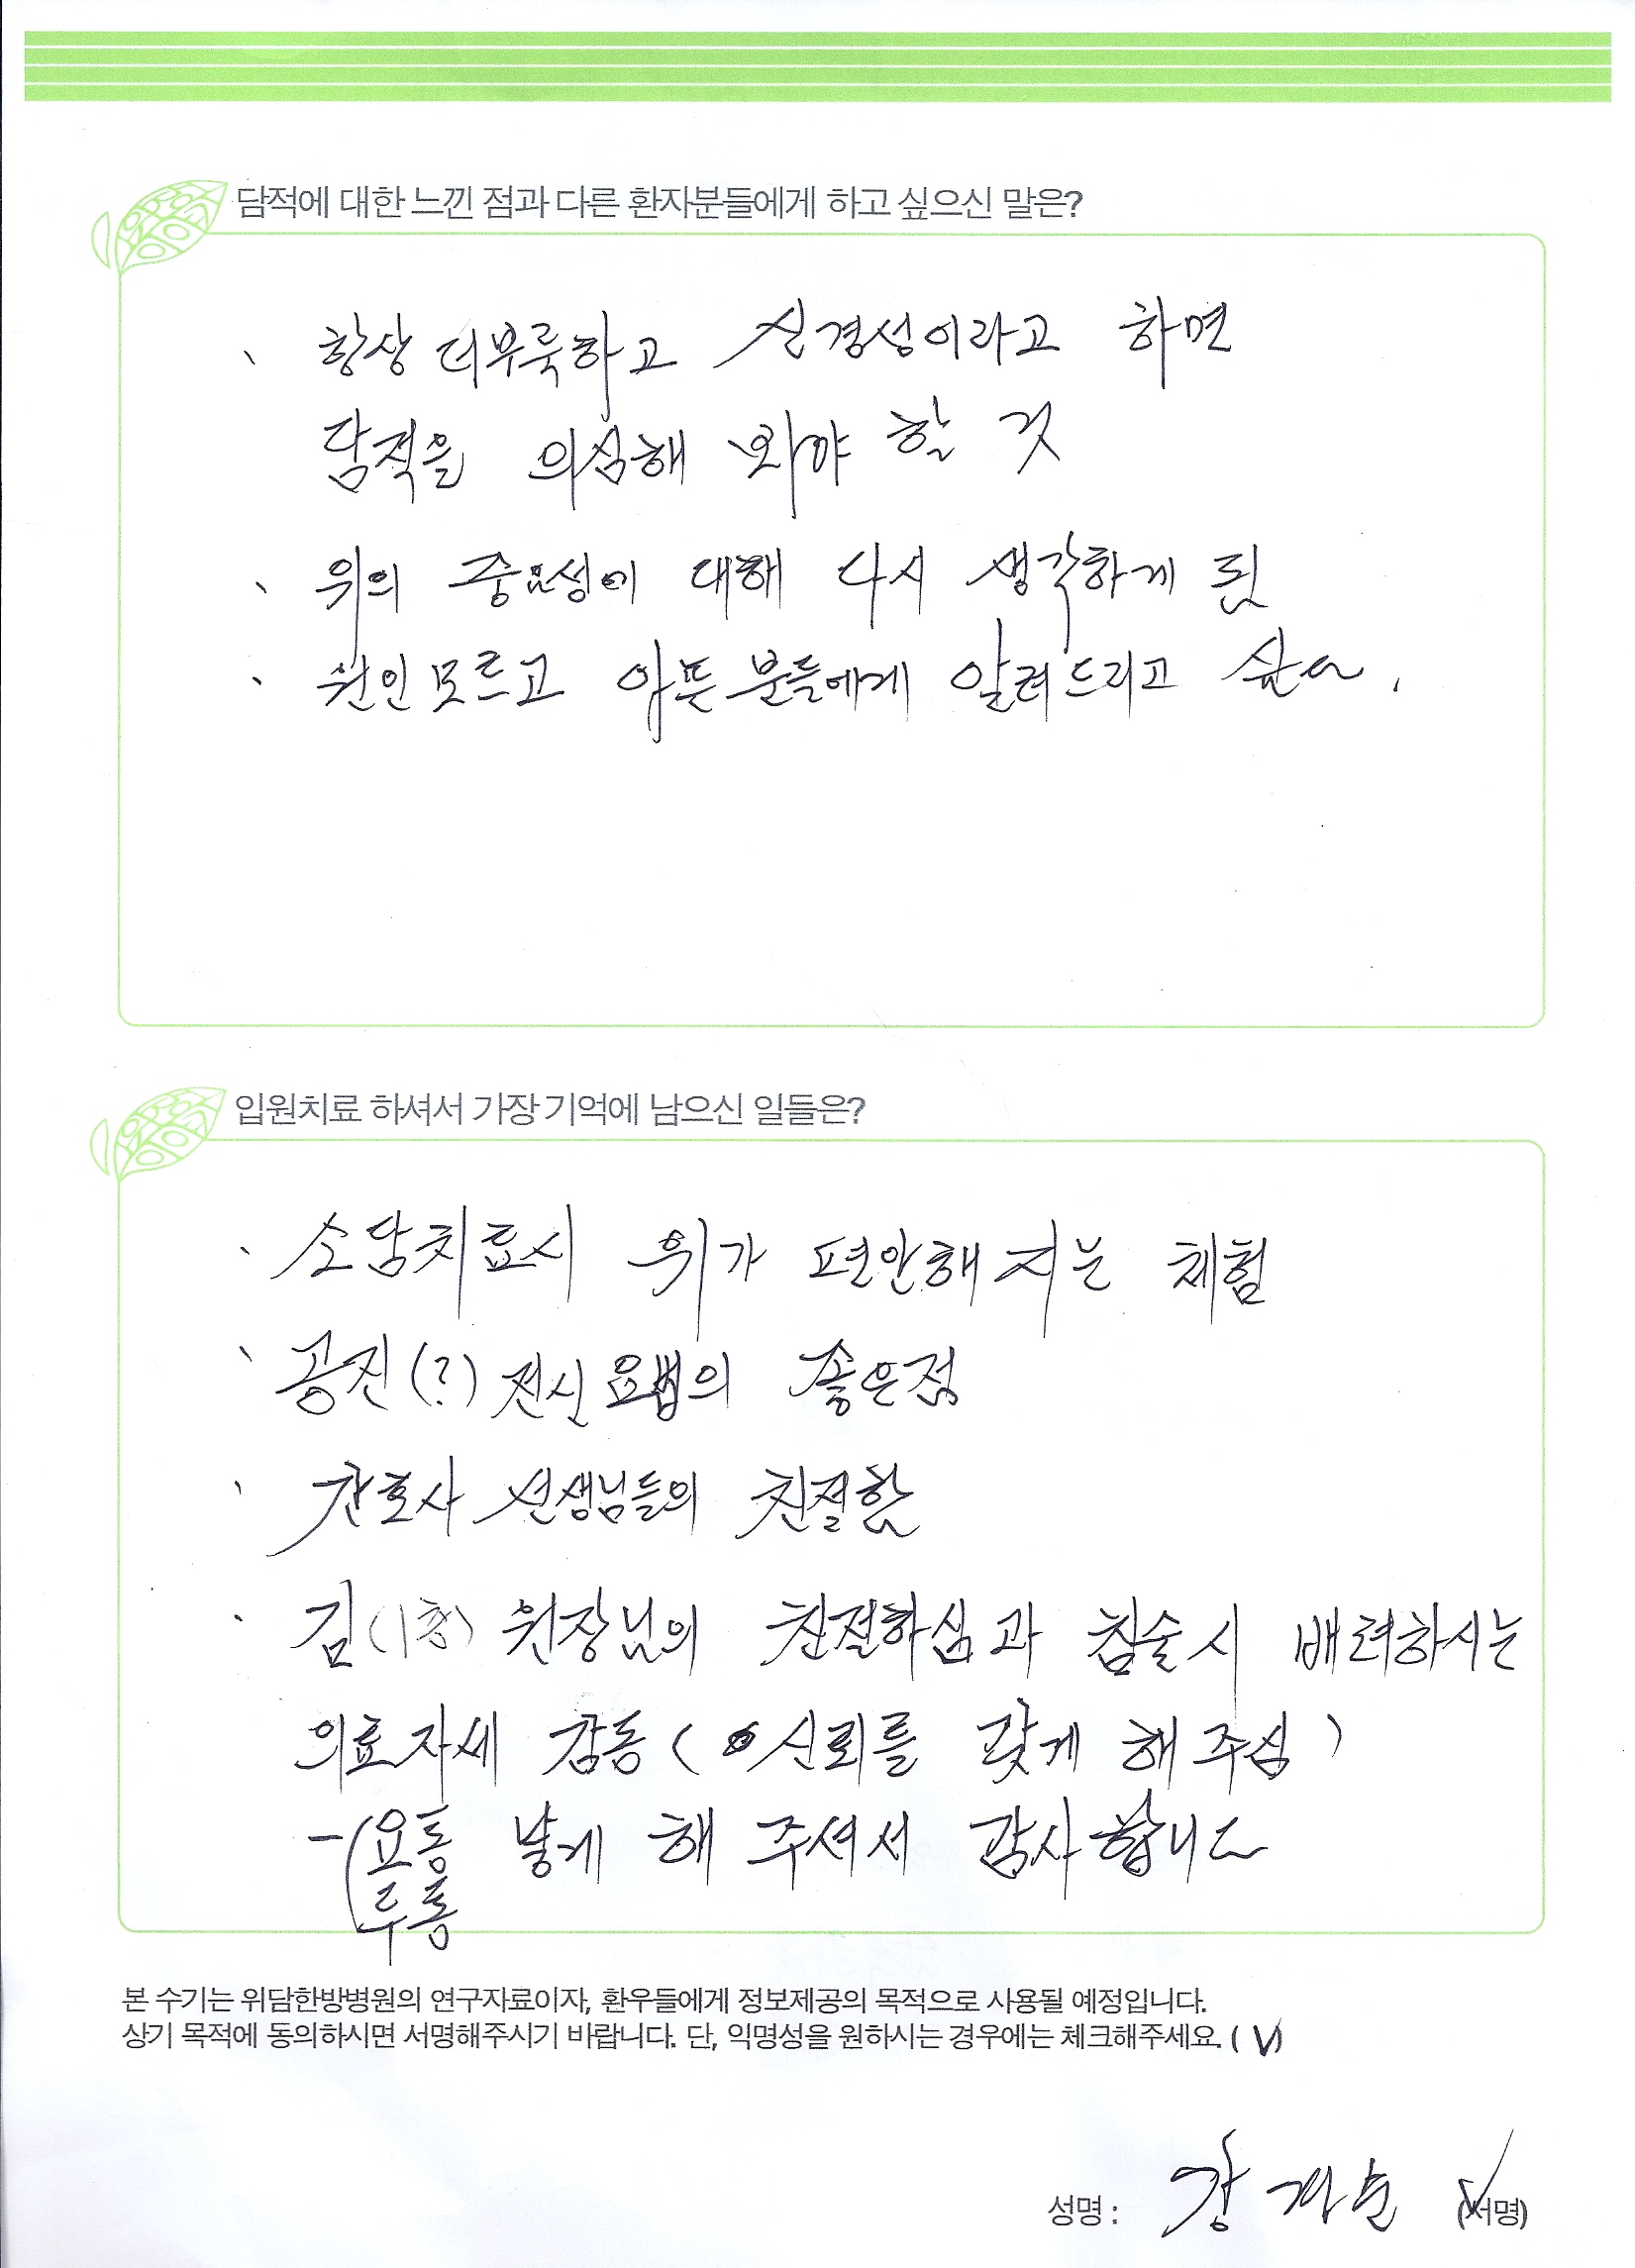 담적에 대한 느낀 점과 다른 환자분들에게 하고 싶으신 말은?
、 항상 더부룩하고 신경성이라고 하면
담적을 의심해 봐야 할 것
、 위의 중요성에 대해 다시 생각하게 됨
、 원인 모르고 아픈 분들에게 알려드리고 싶슴.
입원치료 하셔서 가장 기억에 남으신 일들은?
、 소담치료시 위가 편안해 지는 체험
、 공진(?) 전신 요법의 좋은점
、 간호사 선생님들의 친절함
、 김(1층) 원장님의 친절하심과 침술시 배려하시는
의료자세 감동 ( 신뢰를 갖게 해 주심 )
-(요통 낳게 해 주셔서 감사합니다
두통
본 수기는 위담한방병원의 연구자료이자, 환우들에게 정보제공의 목적으로 사용될 예정입니다.
상기 목적에 동의하시면 서명해주시기 바랍니다. 단, 익명성을 원하시는 경우에는 체크해주세요. ( V)
성명 : 강 순 (서명)